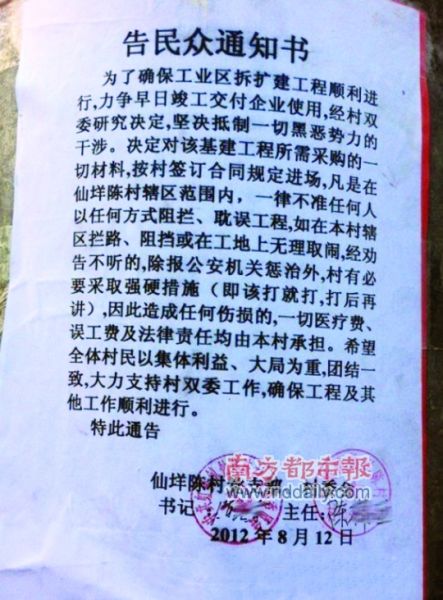 告民众通知书
为了确保工业区拆扩建工程顺利进
行,力争早日竣工交付企业使用,经村双
委研究决定,坚决抵制一切黑恶势力的
干涉。决定对该基建工程所需采购的一
切材料,按村签订合同规定进场,凡是在
仙垟陈村辖区范围内,一律不准任何人
以任何方式阻拦、耽误工程,如在本村辖
区拦路、阻挡或在工地上无理取闹,经劝
告不听的,除报公安机关惩治外,村有必
要采取强硬措施(即该打就打,打后再
讲),因此造成任何伤损的,一切医疗费、
误工费及法律责任均由本村承担。希望
全体村民以集体利益、大局为重,团结一
致,大力支持村双委工作,确保工程及其
他工作顺利进行。
特此通告
南方都市報
仙垟陈村党支部 村委会
www.nddaily.com
书记: 主任:陈
2012年8月12日